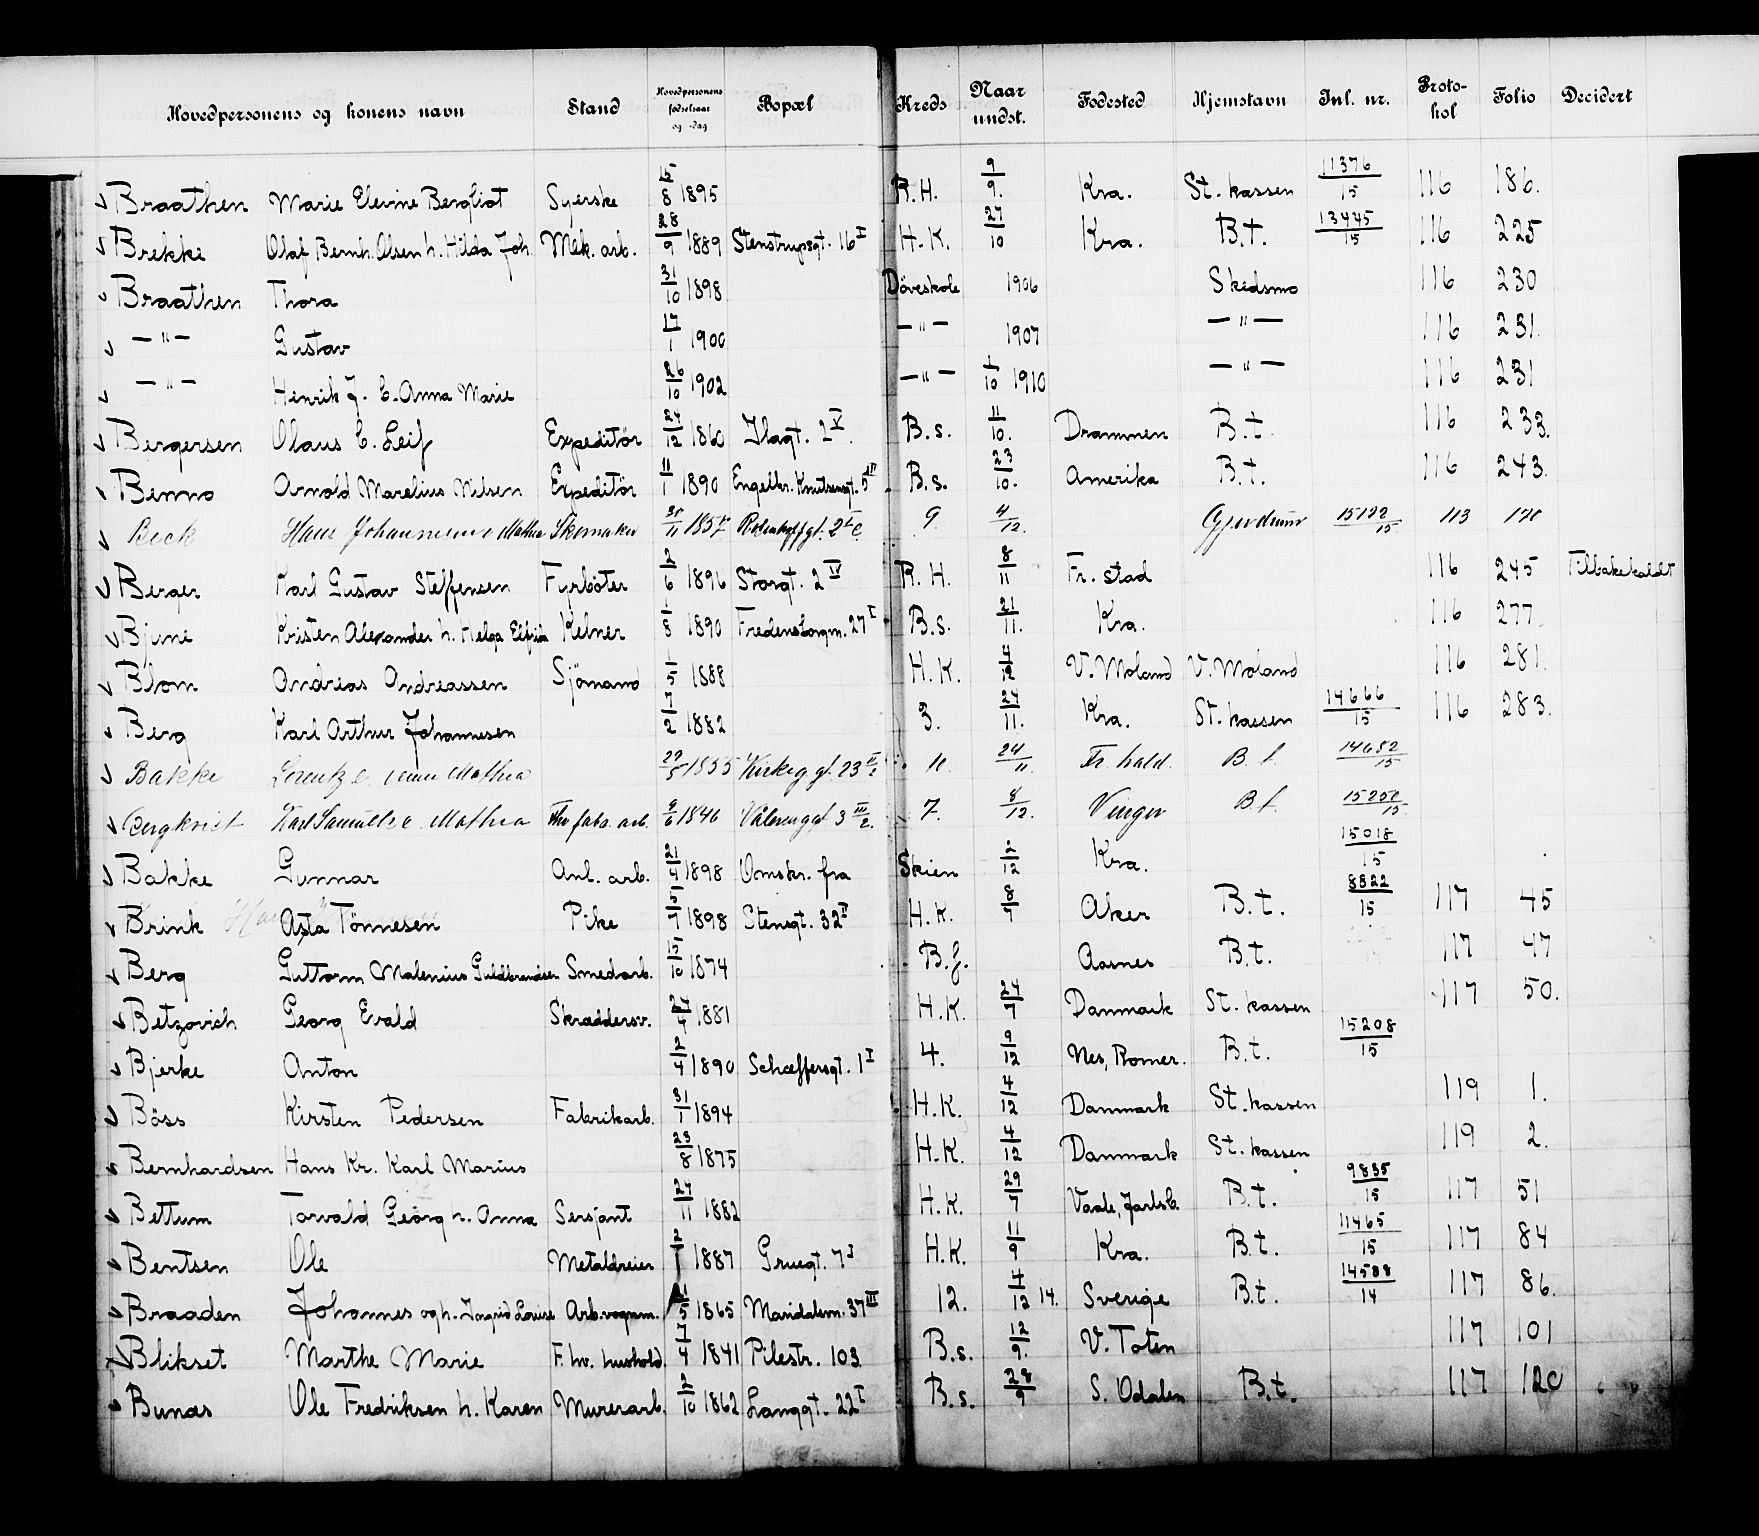 Hovedpersonens og konens navn Stand Hovedpersonens fødselsaar og -dag Bopæl Kreds Naar undst. Fødested Hjemstavn Inl. nr. Proto-kol Folio Decidert
Braathen Marie Elevine Bergliot Syerske 15/8 1895 R.H. 9/9. Kra. St. kassen 11376/15 116 186.
Brekke Olaf Bernh. Olsen h. Hilda Joh. Mek. arb. 28/9 1889 Stenstrupsgt. 16 I H.K. 27/10 Kra. B.t. 13445/15 116 225
Braathen Thora 31/10 1898 Døveskole 1906 Skedsmo 116 230
— " — Gustav 17/1 1900 — " — 1907 — " — 116 231.
— " — Henrik J. E. Anna Marie 26/10 1902 — " — 1/10 1910 — " — 116 231
Bergersen Olaus E. Leif Expeditör 24/12 1860 Ilagt. 2 V. B.s. 11/10. Drammen B.t. 116 233.
Benno Arnold Marelius Nilsen Expeditör 11/1 1890 Engelbr. Knutsensgt. 5 III B.s. 23/10. Amerika B.t. 116 243.
Beck Hans Johannesen o Mathea Skomaker 30/11 1857 9 4/12. Gjerdrum 15122/15 113 170
Berger Karl Gustav Steffensen Fyrböter 2/6 1896 Storgt. 2 IV R.H. 8/11 Fr. stad 116 245 Tilbakekaldt
Bjune Kristen Alexander h. Helga Elfrida Kelner 1/8 1890 Fredensborgvn. 27 I B.s. 21/11. Kra. 116 277
Blom Andreas Andreassen Sjömand 1/5 1888 H.K. 4/12 V. Moland V. Moland 116 281.
Berg Karl Arthur Johannesen 7/2 1882 3. 27/11. Kra. St. kassen 14666/15 116 283.
Bakke Lorentz e. Mathea 29/5 1855 Kirkeg.gt. 23 II/2 11. 24/11. Fr. hald. B. t. 14682/15
Bergkvist Karl Samuelsen e. Mathea fabr. arb. 9/6 1846 Vålerenggt 3 III/2. 7. 8/12. Vinger B.t. 15250/15.
Bakke Gunnar Anl. arb. 21/4 1898 Omskr. fra Skien 2/12 Kra. 15018/15
Brink Asta Tönnesen Pike 5/7 1898 Stensgt. 32 II H.K. 8/7 Aker B.t. 8822/15 117 45
Berg Guttorm Malenius Guldbrandsen Smedarb. 15/10 1874 B.f. Aasnes B.t. 117 47
Betzovich Georg Evald Skræddersv. 24/4 1881 H.K. 24/7 Danmark St. kassen 117 50.
Bjerke Anton 2/4 1890 Schæffersgt. 1 I 4. 9/12 Nes, Romer. B.t. 15208/15
Böss Kirsten Pedersen Fabrikarb. 31/1 1894 H.K. 4/12 Danmark St. kassen 119 1.
Bernhardsen Hans Kr. Karl Marius 23/8 1875 H.K. 4/12 Danmark St. kassen 119 2.
Bettum Torvald Georg h. Anna Sersjant 27/11 1882 H.K. 29/7 Vaale, Jarlsb. B.t. 9835/15 117 51
Bentsen Ole Metaldreier 2/7 1887 Gruegt. 7 I H.K. 11/9 Kra. B.t. 11465/15 117 84
Braaden Johannes og h. Ingrid Louise Arb. vognm. 21/5 1865 Maridalsvn. 37 III 12. 4/12 14. Sverige B.t. 14588/14 117 86.
Blikset Marthe Marie F. hv. hushold. 7/4 1841 Pilestr. 103 B.s. 12/9. V. Toten 117 101
Bunæs Ole Fredriksen h. Karen Murerarb. 2/10 1862 Langgt. 22 I B.s. 28/9 S. Odalen B.t. 117 120